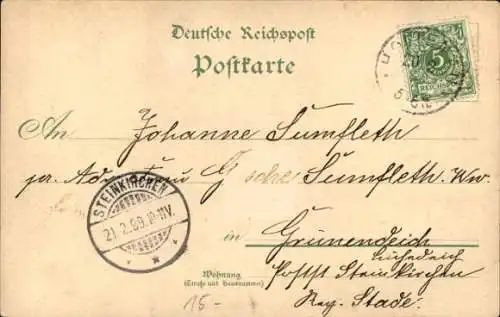 Deutsche Reichspost
Postkarte
5
REICHSPOST
An Johanne Sumfleth
pr. Adr. Frau Gesche Sumfleth Ww.
STEINKIRCHEN
21.2.99. 10-11V.
in Grünendeich
Postst Steinkirchen
Wohnung
(Straße und Hausnummer)
Reg. Stade.
15-